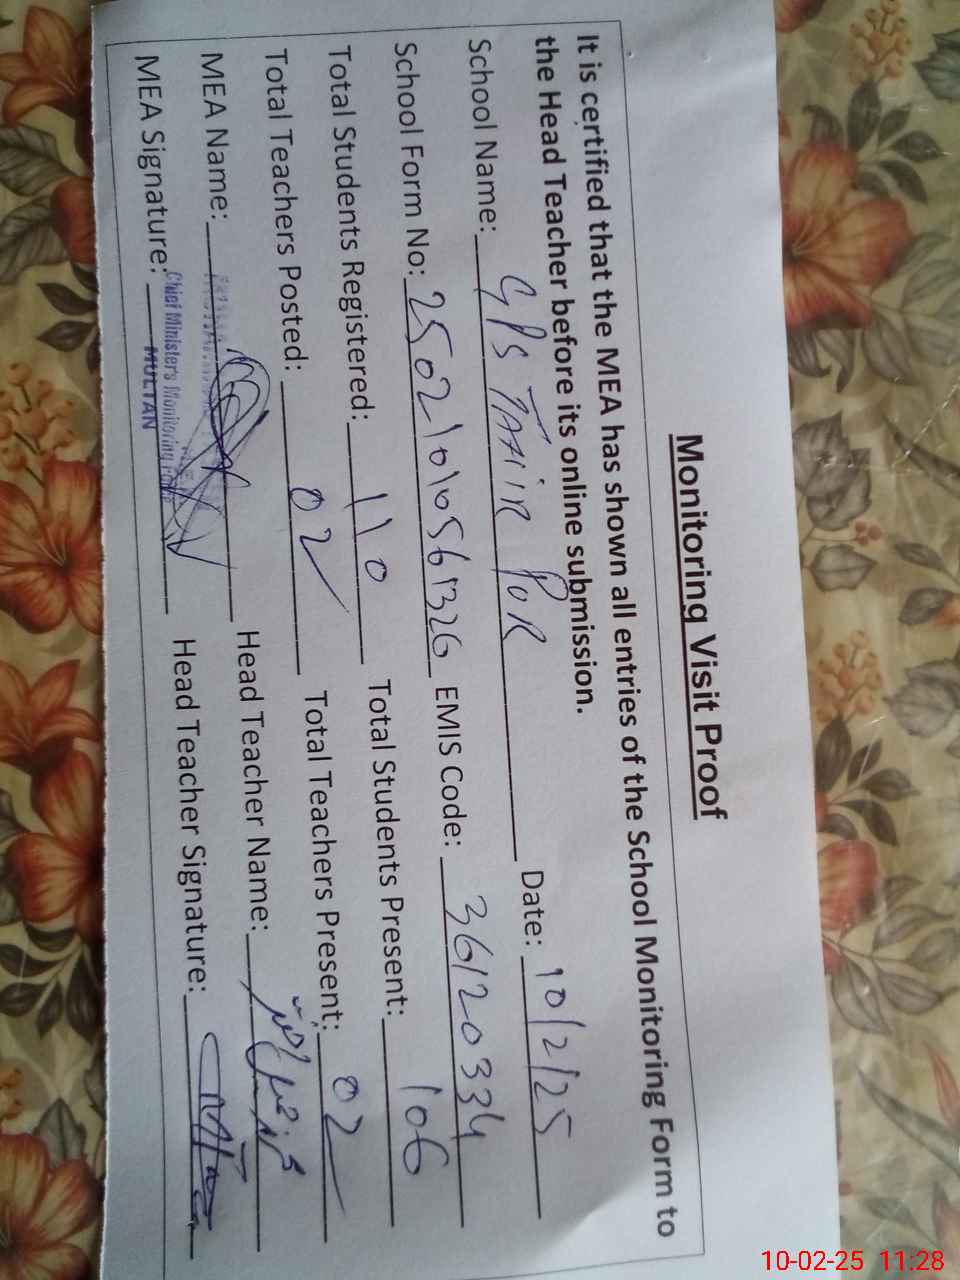 Monitoring Visit Proof
It is certified that the MEA has shown all entries of the School Monitoring Form to
the Head Teacher before its online submission.
School Name: GPS TAHIR PUR Date: 10/2/25
School Form No: 25021010561326 EMIS Code: 36120334
Total Students Registered: 110 Total Students Present: 106
Total Teachers Posted: 02 Total Teachers Present: 02
MEA Name: Head Teacher Name:
MEA Signature: Chief Minister's Monitoring Force Head Teacher Signature:
MULTAN
10-02-25 11:28